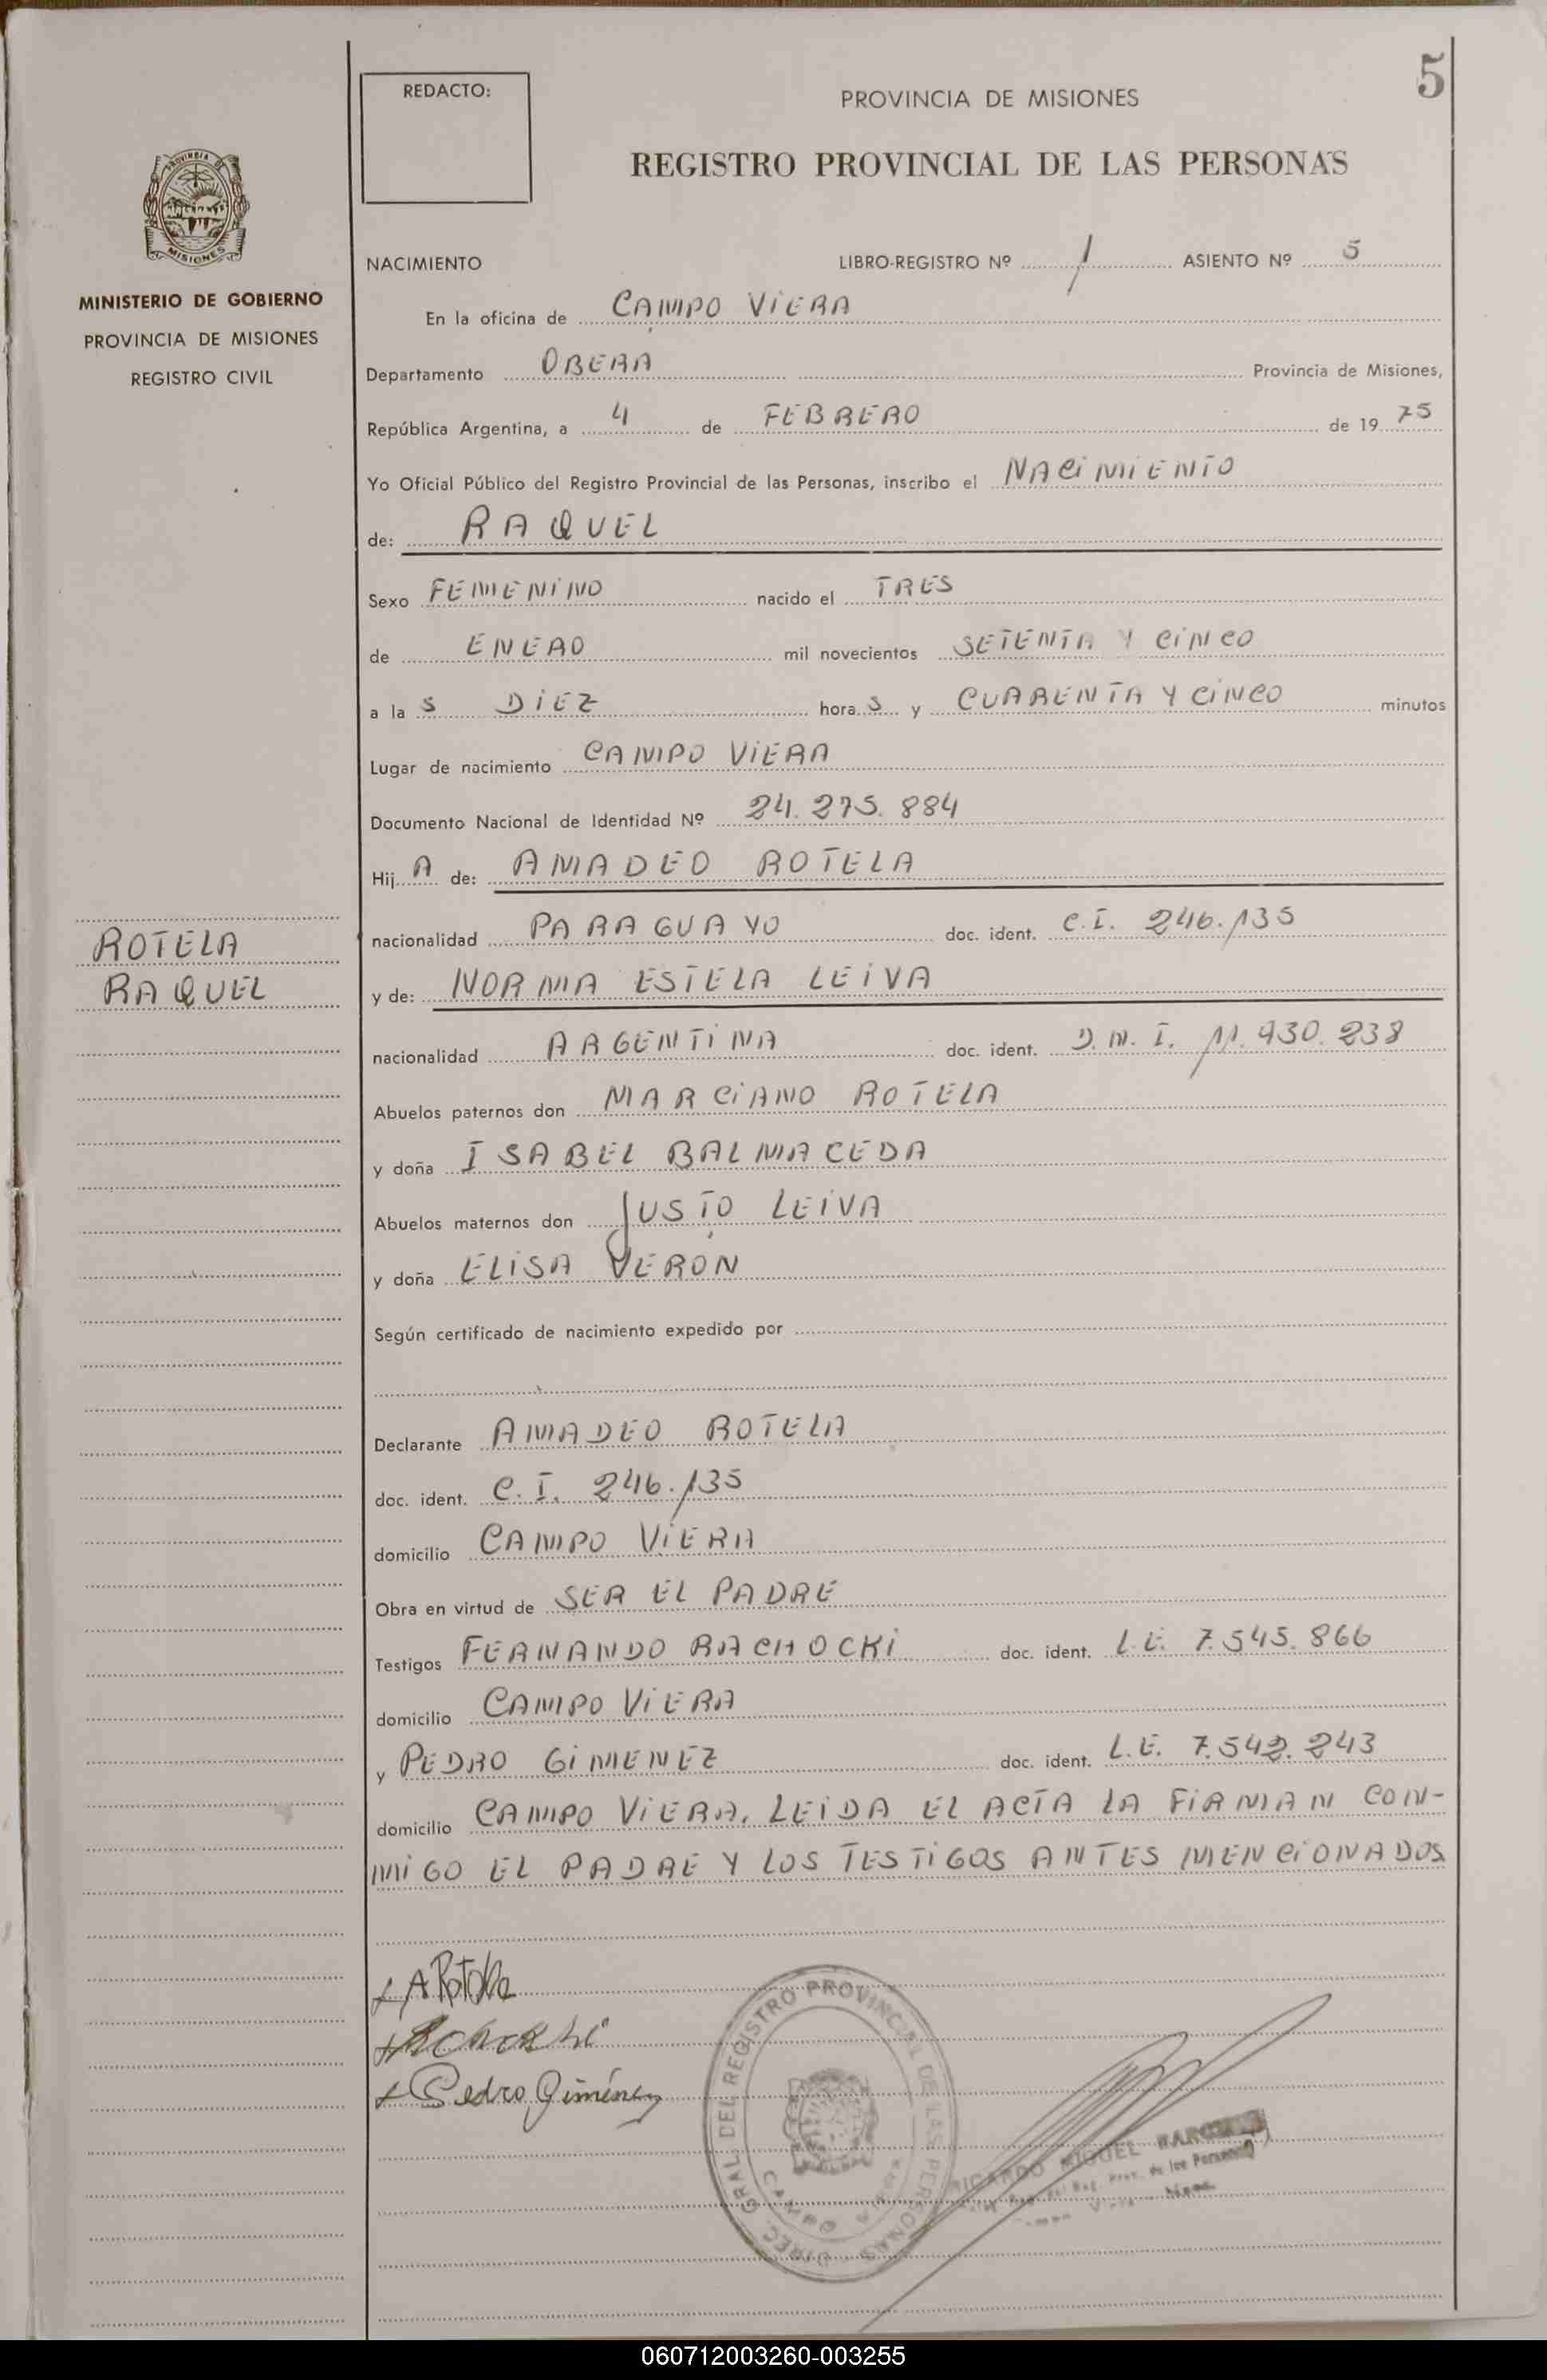 5
REDACTO:
PROVINCIA DE MISIONES
REGISTRO PROVINCIAL DE LAS PERSONAS
PROVINCIA DE
MISIONES
MINISTERIO DE GOBIERNO
PROVINCIA DE MISIONES
REGISTRO CIVIL
NACIMIENTO LIBRO-REGISTRO Nº 1 ASIENTO Nº 5
En la oficina de CAMPO VIERA
Departamento OBERA Provincia de Misiones,
República Argentina, a 4 de FEBRERO de 19 75
Yo Oficial Público del Registro Provincial de las Personas, inscribo el NACIMIENTO
de: RAQUEL
Sexo FEMENINO nacido el TRES
de ENERO mil novecientos SETENTA Y CINCO
a la S DIEZ hora S y CUARENTA Y CINCO minutos
Lugar de nacimiento CAMPO VIERA
Documento Nacional de Identidad Nº 24.275.884
Hij A de: AMADEO ROTELA
nacionalidad PARAGUAYO doc. ident. C.I. 246.135
y de: NORMA ESTELA LEIVA
nacionalidad ARGENTINA doc. ident. D.N.I. 11.930.238
Abuelos paternos don MARCIANO ROTELA
y doña ISABEL BALMACEDA
Abuelos maternos don JUSTO LEIVA
y doña ELISA VERON
Según certificado de nacimiento expedido por
Declarante AMADEO ROTELA
doc. ident. C.I. 246.135
domicilio CAMPO VIERA
Obra en virtud de SER EL PADRE
Testigos FERNANDO RACHOCKI doc. ident. L.E. 7.545.866
domicilio CAMPO VIERA
y PEDRO GIMENEZ doc. ident. L.E. 7.542.243
domicilio CAMPO VIERA. LEIDA EL ACTA LA FIRMAN CON-
MIGO EL PADRE Y LOS TESTIGOS ANTES MENCIONADOS
ROTELA
RAQUEL
A Rotela
Pedro Giménez
DIREC. GRAL. DEL REGISTRO PROVINCIAL DE LAS PERSONAS
CAMPO VIERA
RICARDO MIGUEL
060712003260-003255